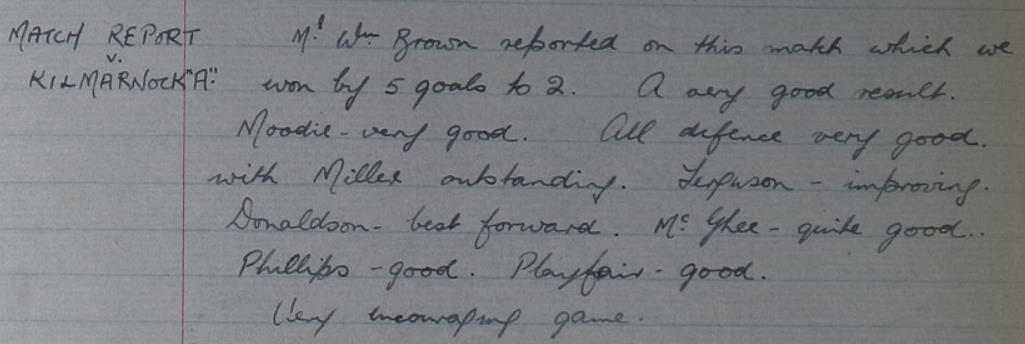 MATCH REPORT
v.
KILMARNOCK "A".
Mr Wm Brown reported on this match which we
won by 5 goals to 2. A very good result.
Moodie - very good. All defence very good.
with Miller outstanding. Ferguson - improving.
Donaldson - best forward. Mc Ghee - quite good..
Phillips - good. Playfair - good.
Very encouraging game.